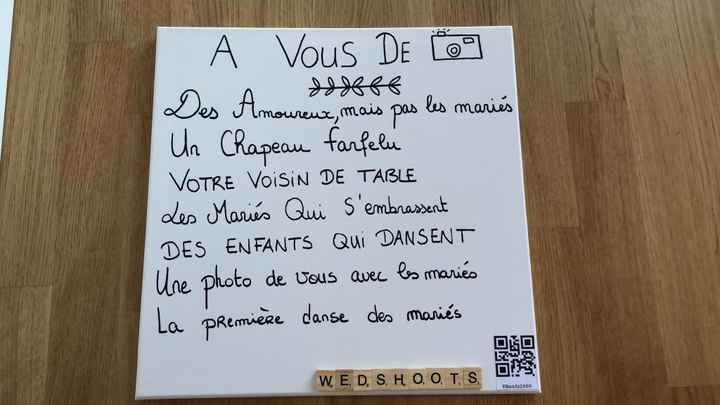 A VOUS DE
Des Amoureux, mais pas les mariés
Un Chapeau farfelu
VOTRE VOISIN DE TABLE
Les Mariés Qui S'embrassent
DES ENFANTS QUI DANSENT
Une photo de vous avec les mariés
La PREMIÈRE danse des mariés
WEDSHOOTS